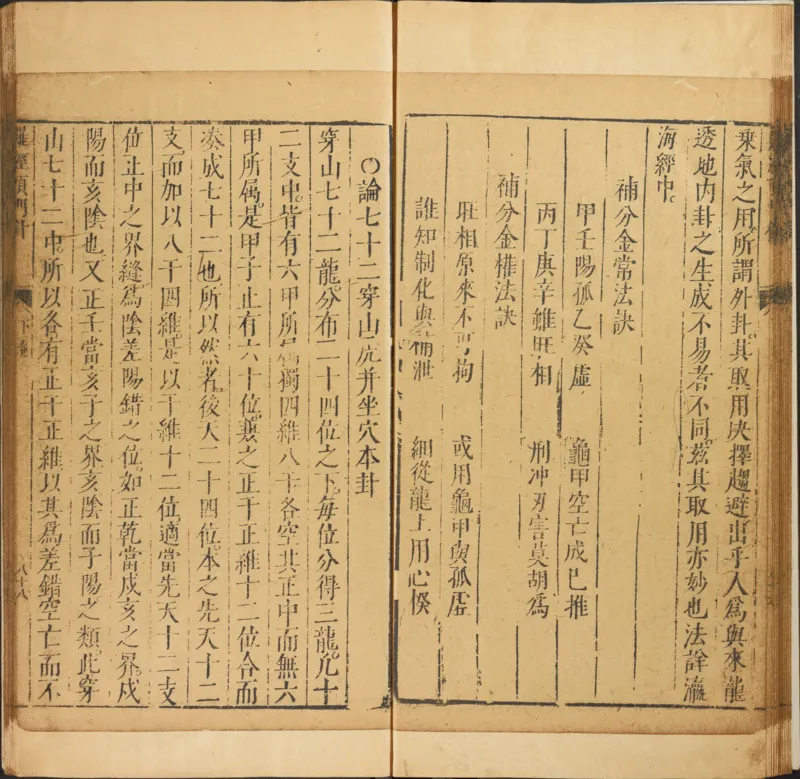 乘氣之用所謂外卦其取用决擇趨避出乎人為與來龍
透地内卦之生成不易者不同茲其取用亦妙也法詳瀛
海經中
補分金常法訣
甲壬陽孤乙癸虛 龜甲空亡戍已推
丙丁庚辛雖旺相 刑冲刃害莫胡為
補分金權法訣
旺相原來不可拘 或用龜甲與孤虛
誰知制化與補泄 細從龍上用心揆
〇論七十二穿山虎并坐穴本卦
穿山七十二龍分布二十四位之下每位分得三龍凡十
二支中皆有六甲所屬獨四維八干各空其正中而無六
甲所屬是甲子止有六十位兼之正干正維十二位合而
湊成七十二也所以然者後天二十四位本之先天十二
支而加以八干四維是以干維十二位適當先天十二支
位正中之界縫為陰差陽錯之位如正乾當戍亥之界戍
陽而亥陰也又正壬當亥子之界亥陰而子陽之類此穿
山七十二中所以各有正干正維以其為差錯空亡而不
羅經頂門針 下卷 八十八